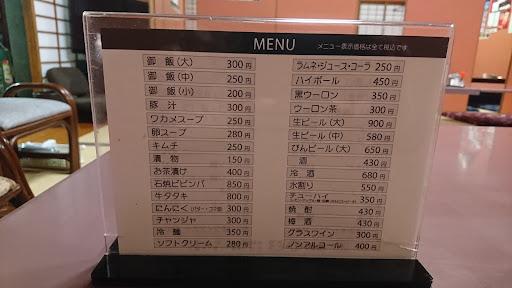 MENU メニュー表示価格は全て税込です
御飯(大) 300円
御飯(中) 250円
御飯(小) 200円
豚汁 300円
ワカメスープ 250円
卵スープ 280円
キムチ 250円
漬物 150円
お茶漬け 400円
石焼ビビンバ 850円
牛タタキ 800円
にんにく(バター・ゴマ油) 300円
チャンジャ 300円
冷麺 350円
ソフトクリーム 280円
ラムネ・ジュース・コーラ 250円
ハイボール 450円
黒ウーロン 350円
ウーロン茶 300円
生ビール(大) 900円
生ビール(中) 580円
びんビール(大) 650円
酒 430円
冷酒 680円
水割り 550円
チューハイ 350円
焼酎 430円
梅酒 430円
グラスワイン 300円
ノンアルコール 400円